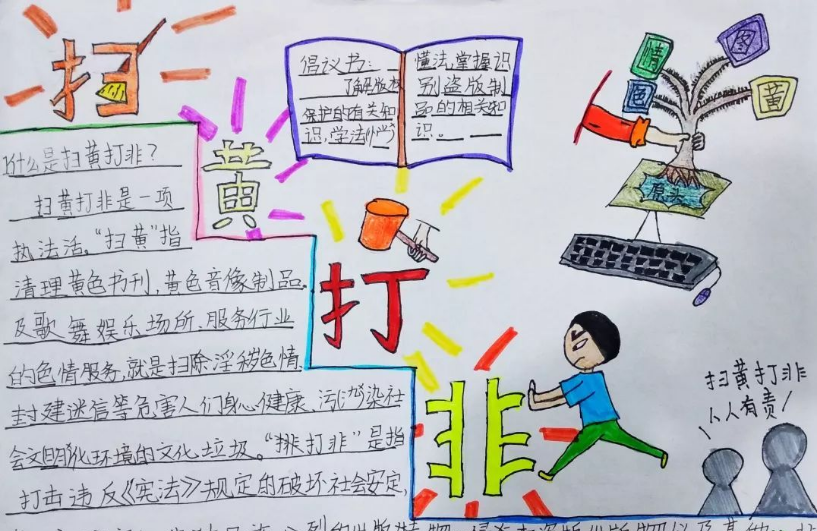 扫
黄
打
非
倡议书：
了解版权
保护的有关知
识，学法
懂法，掌握识
别盗版制
品的相关知
识。
情
色
图
黄
源头
什么是扫黄打非？
扫黄打非是一项
执法活。“扫黄”指
清理黄色书刊，黄色音像制品。
及歌舞娱乐场所、服务行业
的色情服务，就是扫除淫秽色情
封建迷信等危害人们身心健康、污染社
会文明化环境的文化垃圾。“打非”是指
打击违反《宪法》规定的破坏社会安定，
扫黄打非
人人有责！